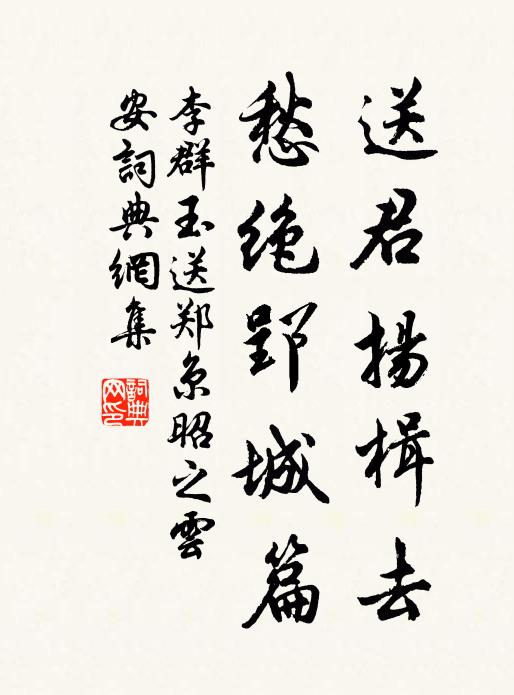 送君揚楫去
愁絶郢城篇
李群玉送郑京昭之雲
安詞典網集
詞典网印